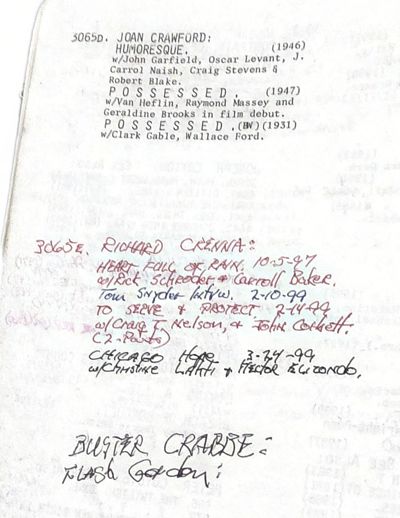 3065D. JOAN CRAWFORD:
HUMORESQUE. (1946)
w/John Garfield, Oscar Levant, J.
Carrol Naish, Craig Stevens &
Robert Blake.
POSSESSED. (1947)
w/Van Heflin, Raymond Massey and
Geraldine Brooks in film debut.
POSSESSED.(BW)(1931)
w/Clark Gable, Wallace Ford.
3065E. RICHARD CRENNA:
HEART FULL OF RAIN. 10-5-97
w/Rick Schroder, & Carroll Baker.
Tom Snyder Intvw. 2-10-99
TO SERVE & PROTECT 2-14-99
w/Craig T. Nelson, & John Corbett.
(2-Parts)
CHICAGO HOPE 3-24-99
w/Christine LAHTI & HECTOR ELIZONDO.
BUSTER CRABBE:
FLASH Gordon: